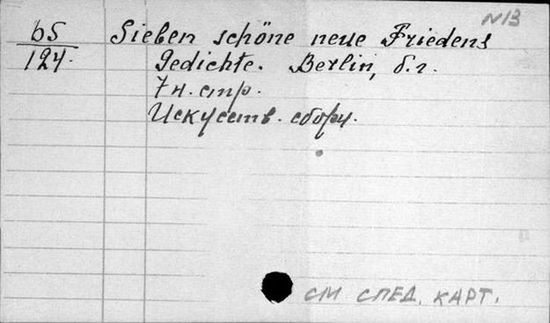 N13
bS
124.
Sieben schöne neue Friedens
Gedichte. Berlin, б.г.
7 н. стр.
Искусств. сборн.
СМ СПЕД. КАРТ.